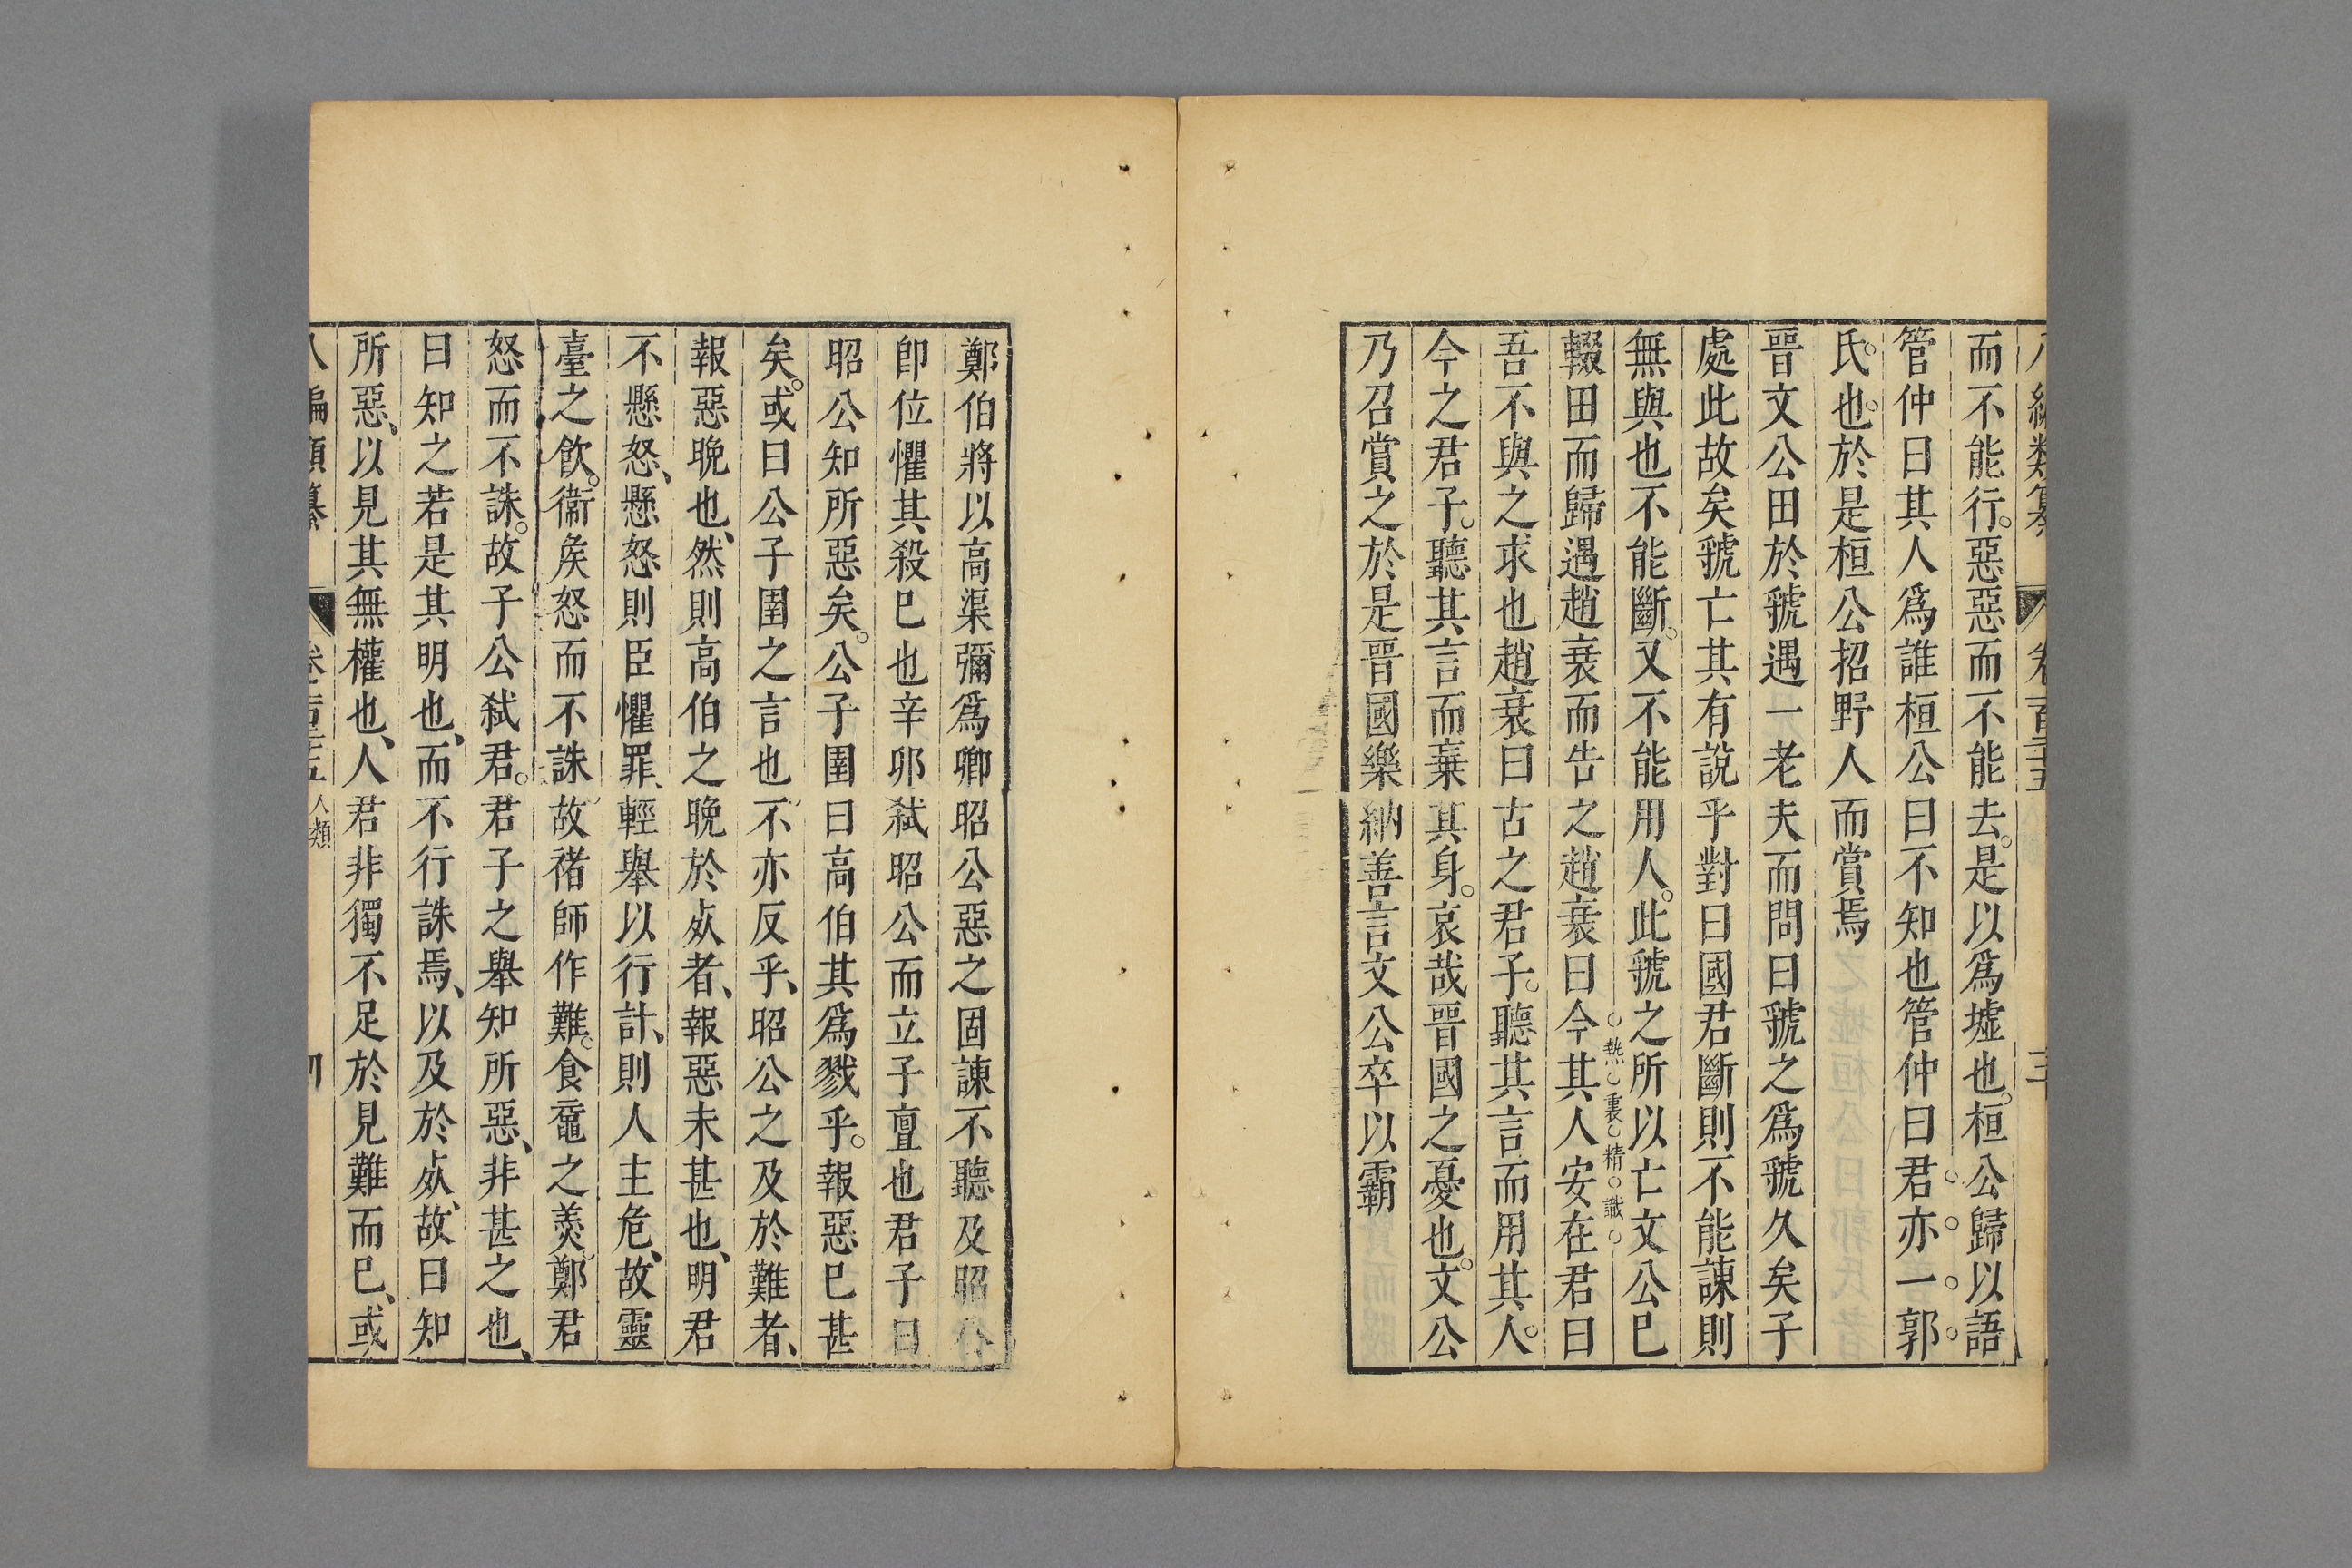 八編類纂 卷百三十五 三
而不能行惡惡而不能去是以爲墟也桓公歸以語
管仲曰其人爲誰桓公曰不知也管仲曰君亦一郭
氏也於是桓公招野人而賞焉
晉文公田於虢遇一老夫而問曰虢之爲虢久矣子
處此故矣虢亡其有說乎對曰國君斷則不能諫則
無與也不能斷又不能用人此虢之所以亡文公巳
熱裏精識
輟田而歸遇趙衰而告之趙衰曰今其人安在君曰
吾不與之求也趙衰曰古之君子聽其言而用其人
今之君子聽其言而棄其身哀哉晉國之憂也文公
乃召賞之於是晉國樂納善言文公卒以霸
鄭伯將以高渠彌爲卿昭公惡之固諫不聽及昭公
卽位懼其殺巳也辛卯弒昭公而立子亶也君子曰
昭公知所惡矣公子圉曰高伯其爲戮乎報惡巳甚
矣或曰公子圉之言也不亦反乎昭公之及於難者、
報惡晚也、然則高伯之晚於㱔者、報惡未甚也、明君
不懸怒、懸怒則臣懼罪、輕舉以行計、則人主危、故靈
臺之飮衞矦怒而不誅故褚師作難食黿之羮鄭君
怒而不誅故子公弒君君子之舉知所惡、非甚之也、
曰知之若是其明也、而不行誅焉、以及於㱔、故曰知
所惡、以見其無權也、人君非獨不足於見難而巳、或
八編類纂 卷百三十五 人類